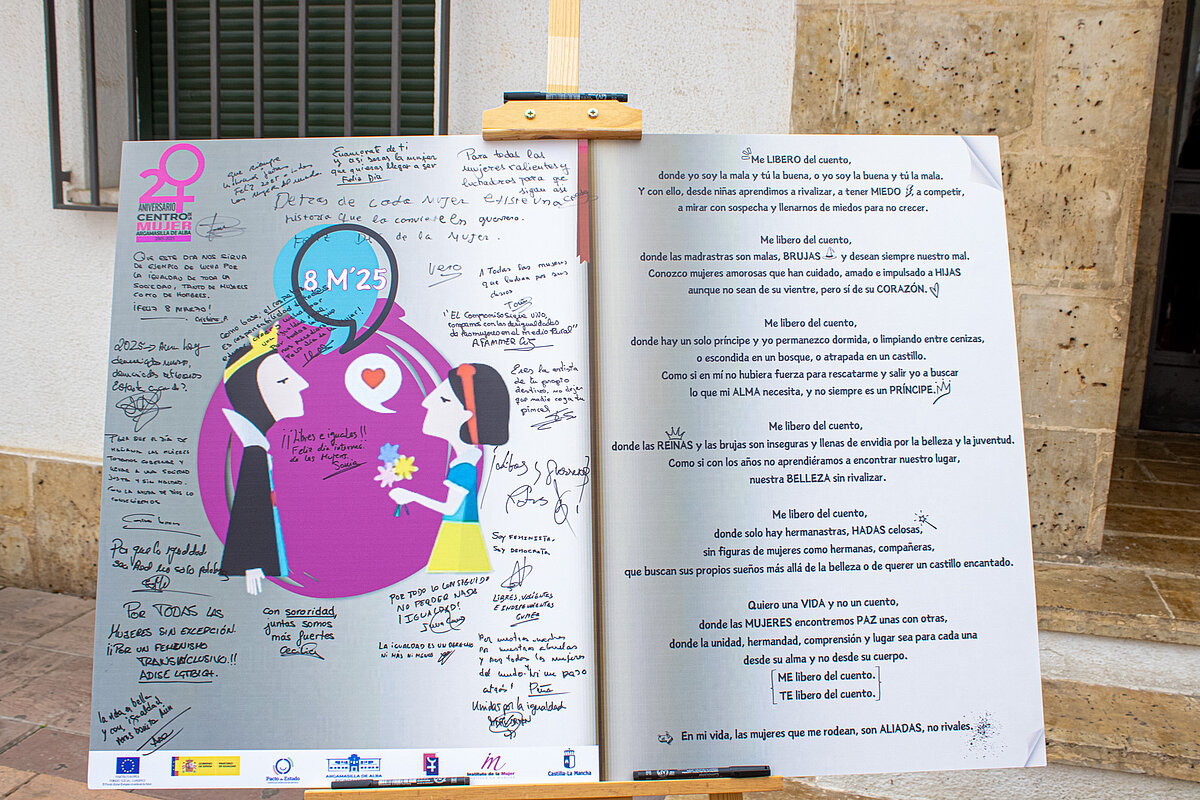 20
ANIVERSARIO
CENTRO DE LA
MUJER
ARGAMASILLA DE ALBA
que siempre
Feliz 2025 a todas
las mujeres del mundo
Enamorat de ti
y así serás la mujer
que quieras llegar a ser
Feliz Día
Para todas las
mujeres valientes y
luchadoras para que
sigan así
Detras de cada mujer existe una
historia que la convierte en guerrera.
Feliz Día de la Mujer.
Que este dia nos sirva
de ejemplo de lucha por
la igualdad de toda la
sociedad, tanto de mujeres
como de hombres.
¡Feliz 8 Marzo!
Cristina A
8 M'25
Vero
A Todas las mujeres
que luchan por sus
"El Compromiso sigue vivo,
compamos con las desigualdades
de las mujeres en el medio Rural"
AFAMMER
Eres la artista
de tu propio
destino, no dejes
que nadie coja tu
pincel
2025 → Aun hay
¡¡Libres e iguales!!
Feliz día interna.
de las Mujeres.
Sonia
Soy feminista,
Soy demócrata
Libres, valientes
e independientes
Por que la igualdad
sea Real no solo palabras
Por TODAS las
mujeres sin excepción.
¡¡Por un feminismo
TRANSINCLUSIVO!!
ADISE LGTBIQ+.
con sororidad,
juntas somos
más fuertes
Cecilia
Por todo lo conseguido
no perder nada
¡IGUALDAD!
La igualdad es un derecho
ni más ni menos
Por nuestras madres
Por nuestras abuelas
y por todas las mujeres
del mundo. Ni un paso
atrás!
Unidas por la igualdad
la vida es bella
y con igualdad
Pacto de Estado
ARGAMASILLA DE ALBA
Instituto de la Mujer
Castilla-La Mancha
Me LIBERO del cuento,
donde yo soy la mala y tú la buena, o yo soy la buena y tú la mala.
Y con ello, desde niñas aprendimos a rivalizar, a tener MIEDO, a competir,
a mirar con sospecha y llenarnos de miedos para no crecer.
Me libero del cuento,
donde las madrastras son malas, BRUJAS y desean siempre nuestro mal.
Conozco mujeres amorosas que han cuidado, amado e impulsado a HIJAS
aunque no sean de su vientre, pero sí de su CORAZÓN.
Me libero del cuento,
donde hay un solo príncipe y yo permanezco dormida, o limpiando entre cenizas,
o escondida en un bosque, o atrapada en un castillo.
Como si en mí no hubiera fuerza para rescatarme y salir yo a buscar
lo que mi ALMA necesita, y no siempre es un PRÍNCIPE.
Me libero del cuento,
donde las REINAS y las brujas son inseguras y llenas de envidia por la belleza y la juventud.
Como si con los años no aprendiéramos a encontrar nuestro lugar,
nuestra BELLEZA sin rivalizar.
Me libero del cuento,
donde solo hay hermanastras, HADAS celosas,
sin figuras de mujeres como hermanas, compañeras,
que buscan sus propios sueños más allá de la belleza o de querer un castillo encantado.
Quiero una VIDA y no un cuento,
donde las MUJERES encontremos PAZ unas con otras,
donde la unidad, hermandad, comprensión y lugar sea para cada una
desde su alma y no desde su cuerpo.
ME libero del cuento.
TE libero del cuento.
En mi vida, las mujeres que me rodean, son ALIADAS, no rivales.